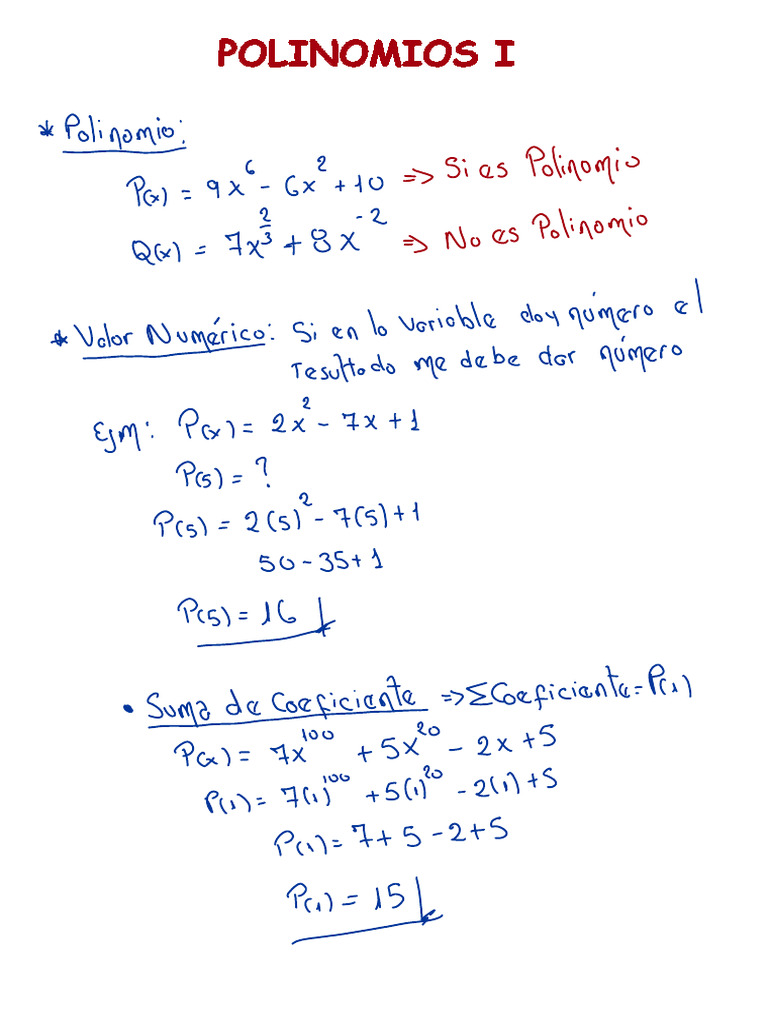 POLINOMIOS I
* Polinomio:
P(x) = 9x⁶ - 6x² + 10 => Si es Polinomio
Q(x) = 7x^(2/3) + 8x⁻² => No es Polinomio
* Valor Numérico: Si en la variable doy número el
resultado me debe dar número
Ejm: P(x) = 2x² - 7x + 1
P(5) = ?
P(5) = 2(5)² - 7(5) + 1
50 - 35 + 1
P(5) = 16
• Suma de Coeficiente => ΣCoeficiente = P(1)
P(x) = 7x¹⁰⁰ + 5x²⁰ - 2x + 5
P(1) = 7(1)¹⁰⁰ + 5(1)²⁰ - 2(1) + 5
P(1) = 7 + 5 - 2 + 5
P(1) = 15